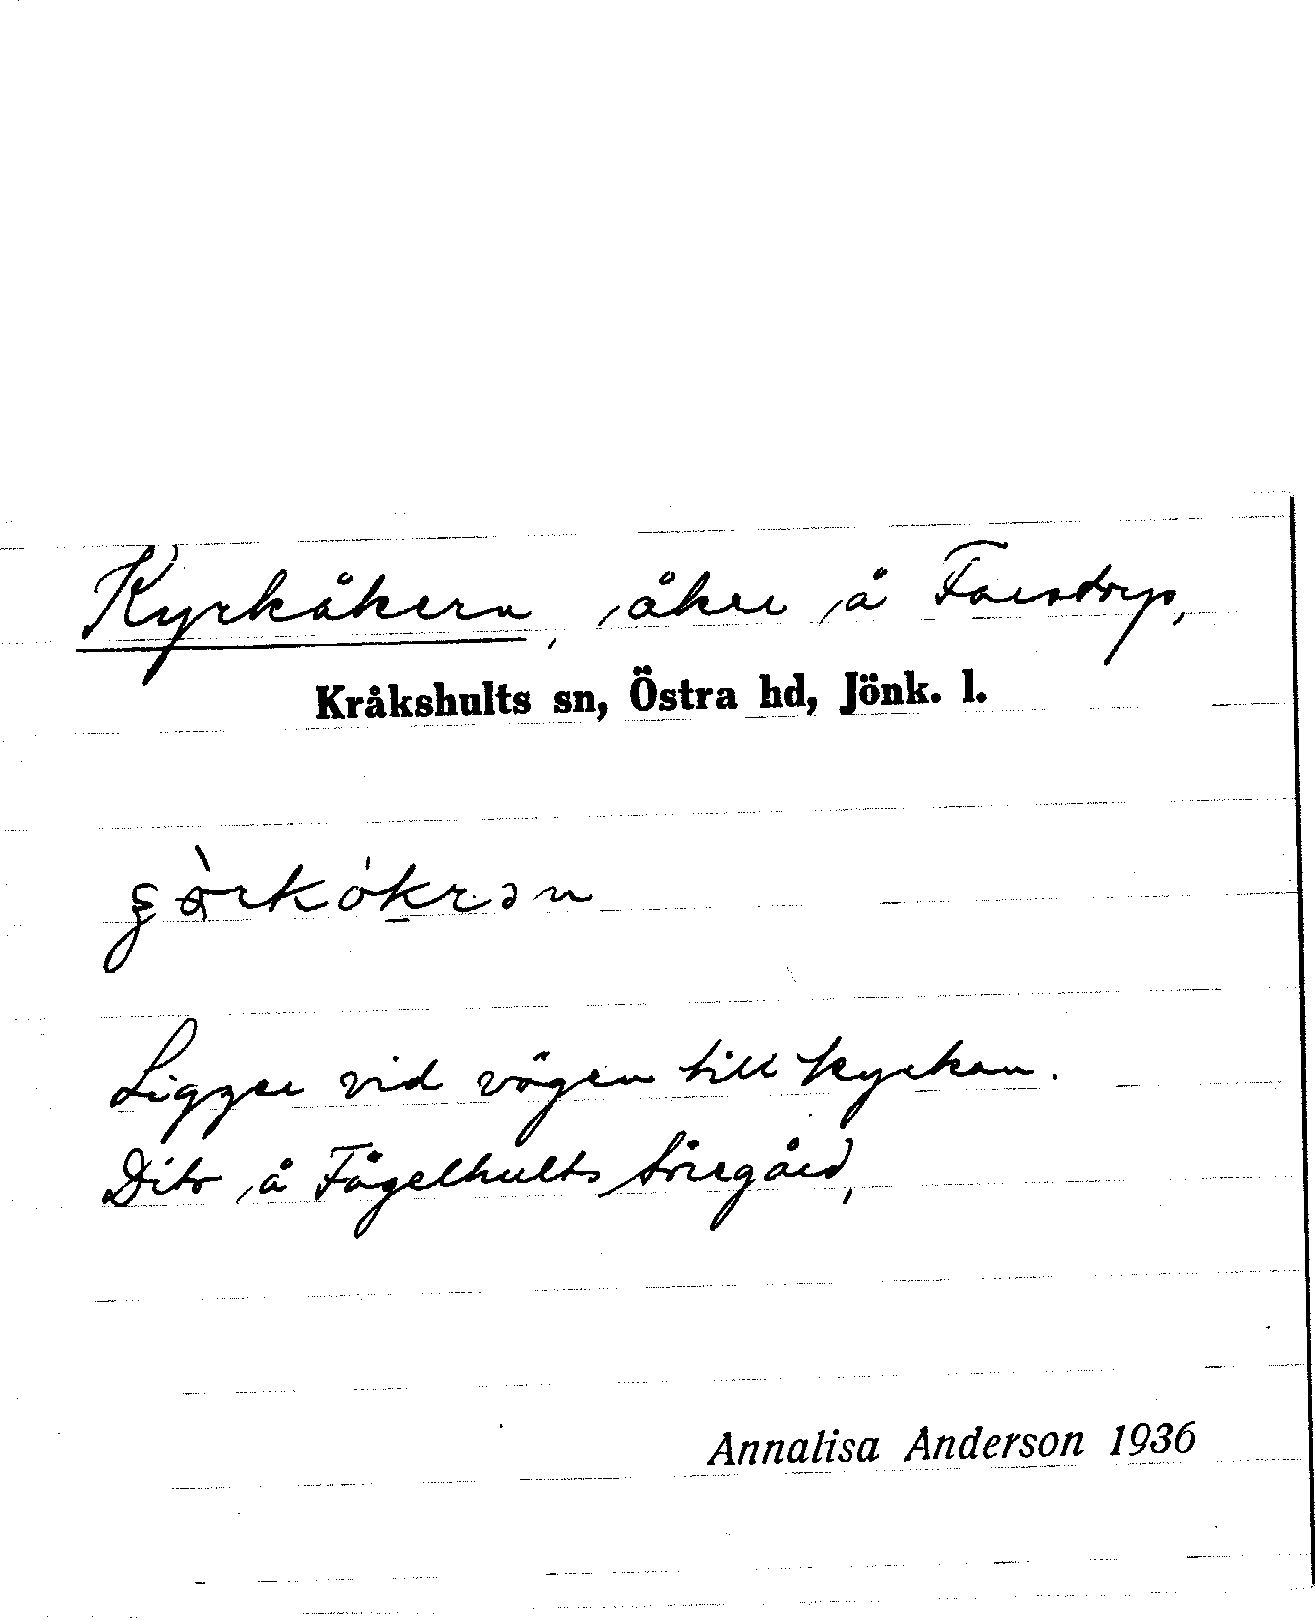 Kyrkåkern, åker å Farstorp,
Kråkshults sn, Östra hd, Jönk. l.
Ligger vid vägen till kyrkan.
Dito å Fågelhults Söregård,
Annalisa Anderson 1936